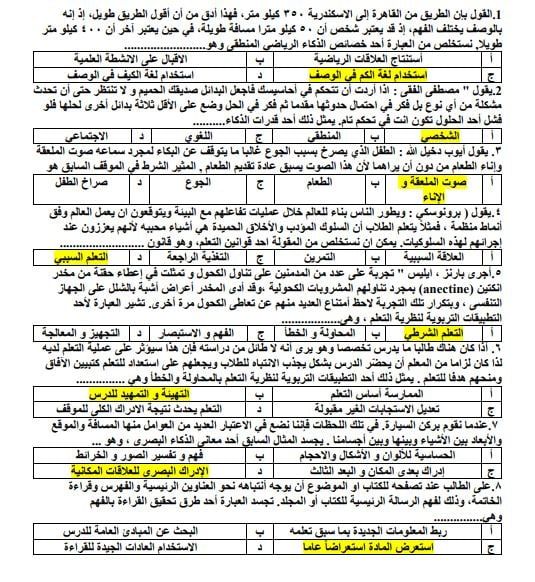 1.القول بإن الطريق من القاهرة إلى الاسكندرية ٣٥٠ كيلو متر، فهذا أدق من أن أقول الطريق طويل، إذ إنه
بالوصف يختلف الفهم، إذ قد يعتبر شخص أن ٥٠ كيلو مترا مسافة طويلة، في حين يعتبر آخر أن ٤٠٠ كيلو متر
طويلا. نستخلص من العبارة أحد خصائص الذكاء الرياضي المنطقي وهو......................
أ استنتاج العلاقات الرياضية ب الاقبال على الانشطة العلمية
ج أستخدام لغة الكم في الوصف د استخدام لغة الكيف في الوصف
2.يقول " مصطفى الفقى : اذا أردت أن تتحكم في أحاسيسك فاجعل البدائل صديقك الحميم و لا تنتظر حتى أن تحدث
مشكلة من أي نوع بل فكر في احتمال حدوثها مقدما ثم فكر في الحل وضع على الأقل ثلاثة بدائل أخرى لحلها فلو
فشل أحد الحلول تكون انت في تحكم تام. يمثل ذلك أحد قدرات الذكاء..........
أ الشخصي ب المنطقي ج اللغوي د الاجتماعي
٣. يقول أيوب دخيل الله : الطفل الذي يصرخ بسبب الجوع غالبا ما يتوقف عن البكاء لمجرد سماعه صوت الملعقة
وإناء الطعام من دون أن يراهما لأن هذا الصوت يسبق عادة تقديم الطعام , المثير الشرط في الموقف السابق هو
أ صوت الملعقة و الإناء ب الطعام ج الجوع د صراخ الطفل
٤. يقول ( برونوسكي : ويطور الناس بناء للعالم خلال عمليات تفاعلهم مع البيئة ويتوقعون ان يعمل العالم وفق
أنماط منظمة , فمثلاً يتعلم الطلاب أن السلوك المؤدب والأخلاق الحميدة هي أشياء محببه لأنهم يعززون عند
إجرائهم لهذه السلوكيات. يمكن ان نستخلص من المقولة احد قوانين التعلم، وهو قانون ......................
أ العلاقة السببية ب التمرين ج التغذية الراجعة د التعلم السببي
٥.أجرى بارنز ، ايليس " تجربة على عدد من المدمنين على تناول الكحول و تمثلت في إعطاء حقنة من مخدر
انكتين (anectine) بمجرد تناولهم المشروبات الكحولية ،وقد أدى المخدر أعراض أشبة بالشلل على الجهاز
التنفسي ، وبتكرار تلك التجربة لاحظ أمتناع العديد منهم عن تعاطى الكحول مرة أخرى. تشير العبارة لأحد
التطبيقات التربوية لنظرية التعلم ، وهى......
أ التعلم الشرطي ب المحاولة و الخطأ ج الفهم و الاستبصار د التجهيز و المعالجة
٦. أذا كان هناك طالبا ما يدرس تخصصا وهو يرى أنه لا طائل من دراسته فإن هذا سيؤثر على عملية التعلم لديه
لذا كان لزاما من المعلم أن يحضر الدرس بشكل يجذب الانتباه للطلاب ويجعلهم على استعداد للتعلم كتبيين الآفاق
ومنحهم هدفا للتعلم . يمثل ذلك أحد التطبيقات التربوية لنظرية التعلم بالمحاولة والخطأ وهي ...............
أ الممارسة أساس التعلم ب التهيئة و التمهيد للدرس
ج تعديل الاستجابات الغير مقبولة د التعلم يحدث نتيجة الادراك الكلي للموقف
٧.عندما نقوم بركن السيارة. في تلك اللحظات فإننا نضع في الاعتبار العديد من العوامل منها المسافة والموقع
والأبعاد بين الأشياء وبينها وبين أجسامنا . يجسد المثال السابق أحد معاني الذكاء البصرى ، وهو ...
أ الحساسية للألوان و الأشكال والاحجام ب فهم و تفسير الصور و الخرائط
ج إدراك بعدى المكان و البعد الثالث د الإدراك البصرى للعلاقات المكانية
٨. على الطالب عند تصفحه للكتاب او الموضوع أن يوجه أنتباهه نحو العناوين الرئيسية والفهرس وقراءة
الخاتمة، وذلك لفهم الرسالة الرئيسية للكتاب أو المجلد. تجسد العبارة أحد طرق تحقيق القراءة بالفهم
وهي...............
أ ربط المعلومات الجديدة بما سبق تعلمه ب البحث عن المبادئ العامة للدرس
ج استعرض المادة استعراضاً عاما د الاستخدام العادات الجيدة للقراءة